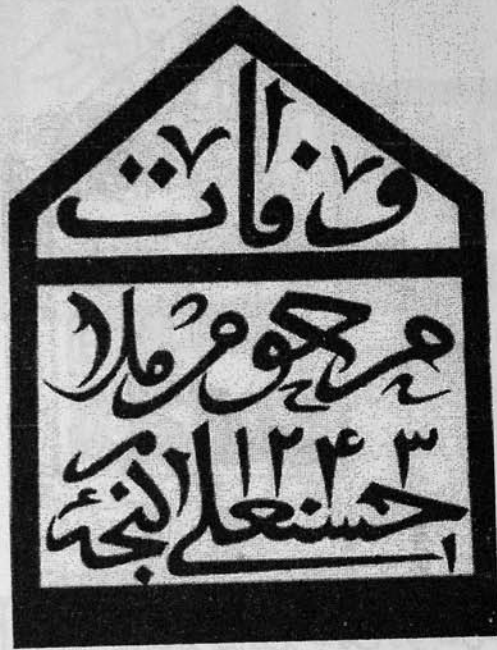 وفات
مرحوم ملا
۱۲۴۳
حسنعلی